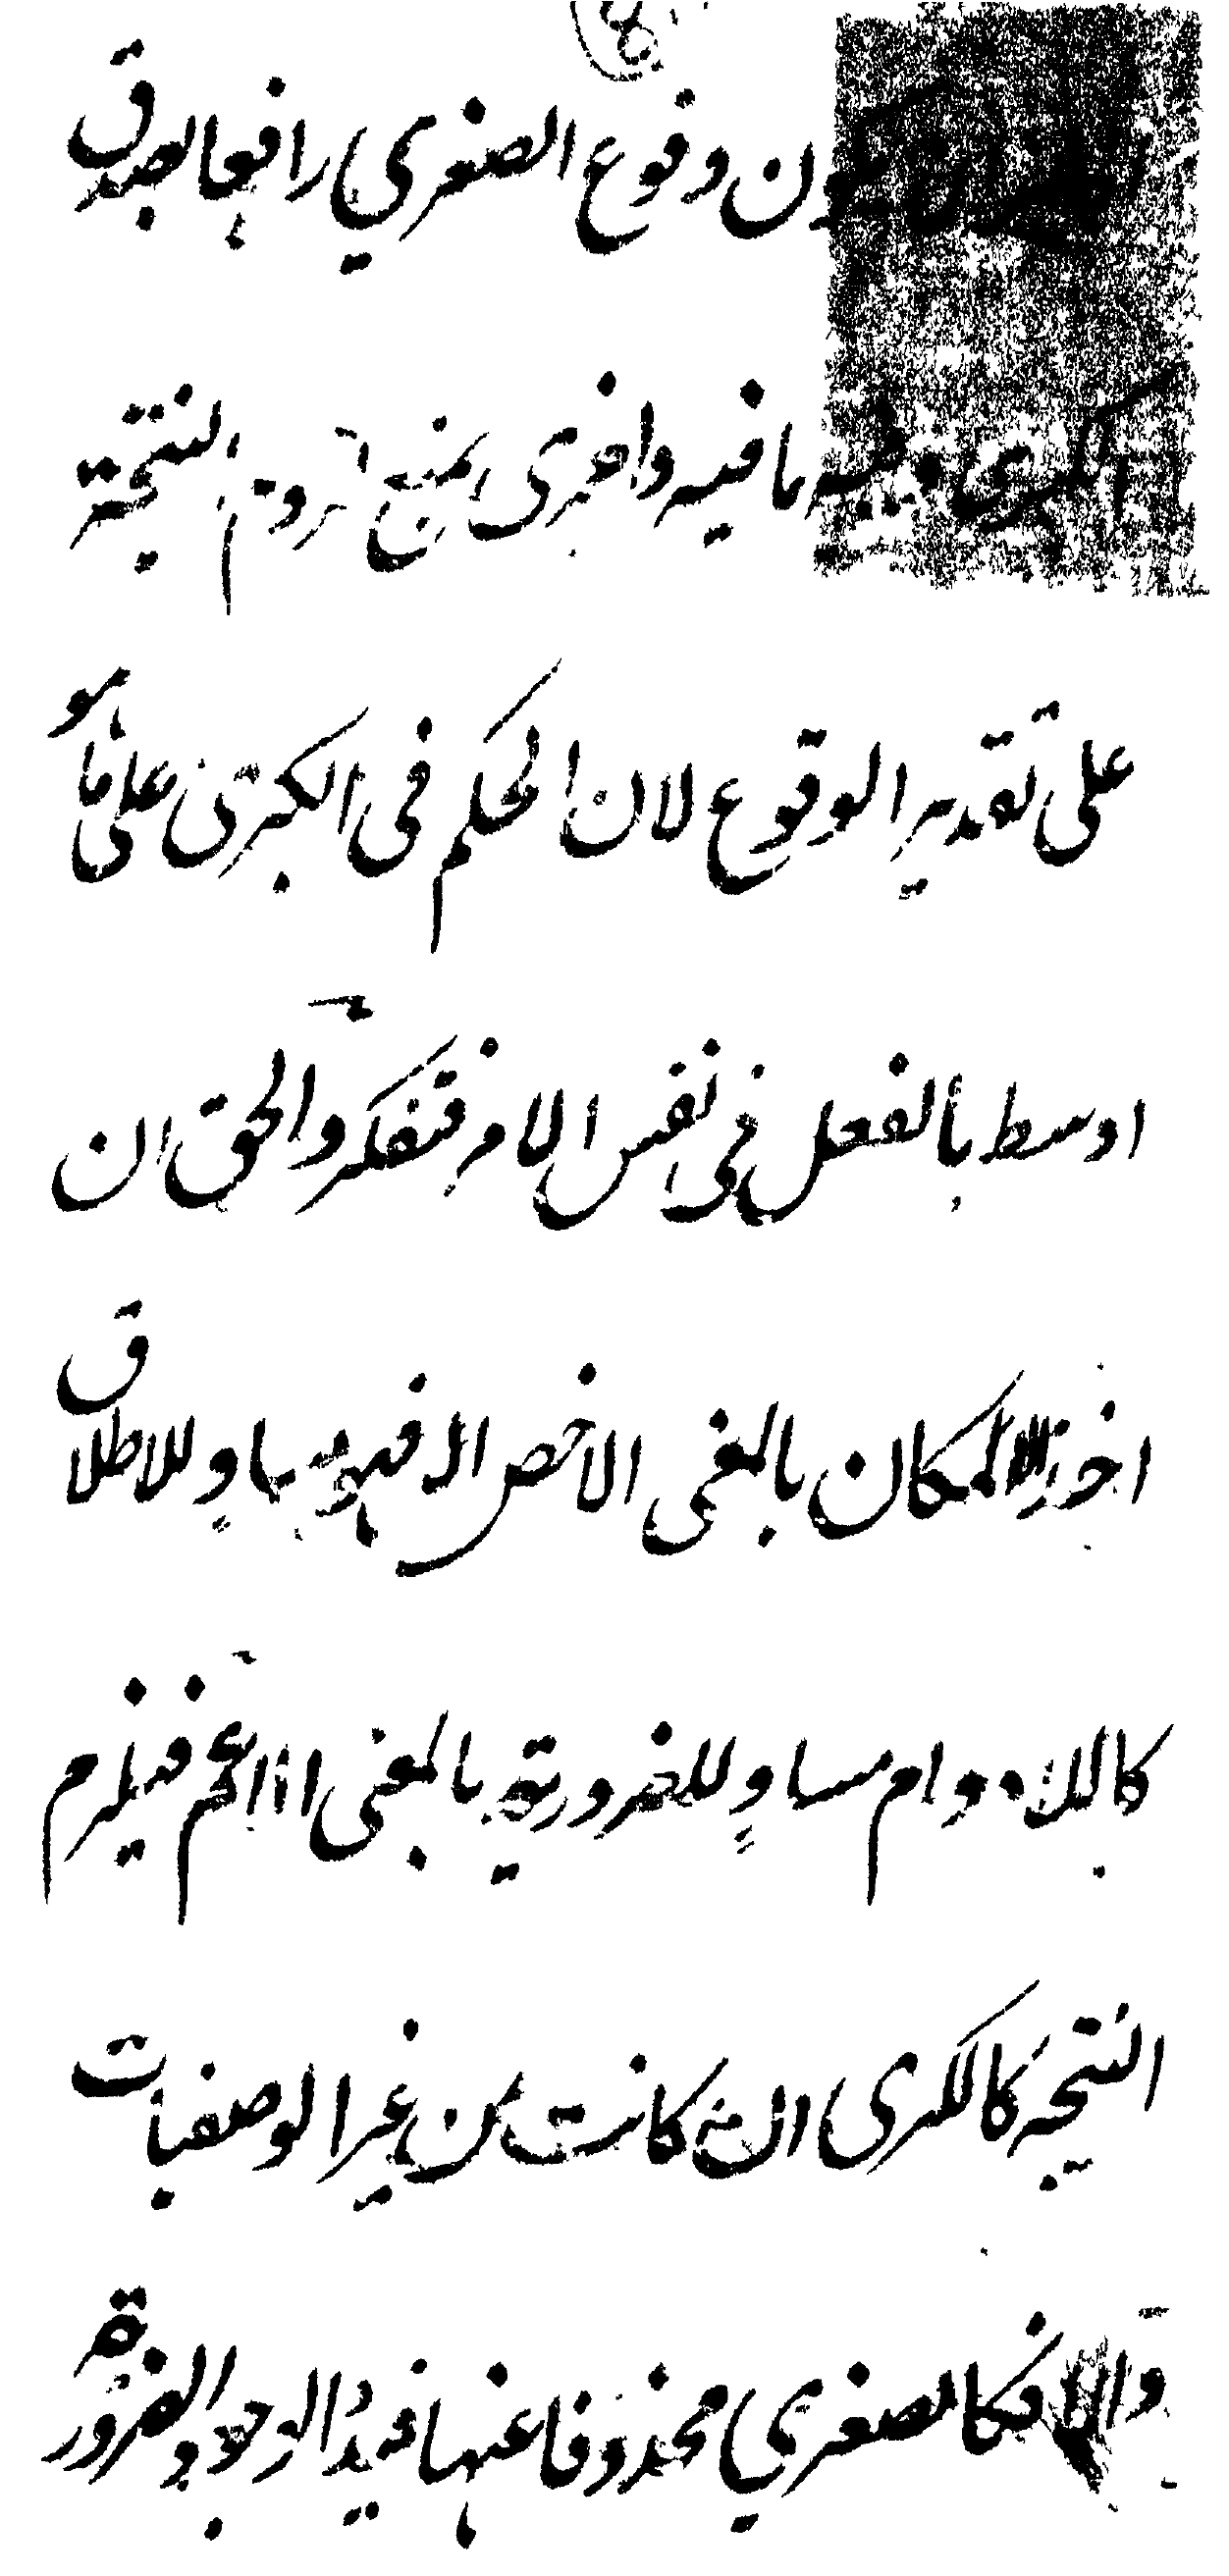 يكون وقوع الصغري رافعا لصدق
الكبرى وفيه ما فيه واخرى بمنع لزوم النتيجة
على تقدير الوقوع لان الحكم في الكبرى على ما هو
اوسط بالفعل في نفس الامر فتفكر والحق ان
الامكان بالمعنى الاخص مساوٍ للاطلاق
كاللادوام مساوٍ للضرورية بالمعنى الاعم فيلزم
النتيجه كالكبرى ان كانت من غير الوصفيات
والا فكالصغري محذوفا عنها قيد الوجود والضرورة